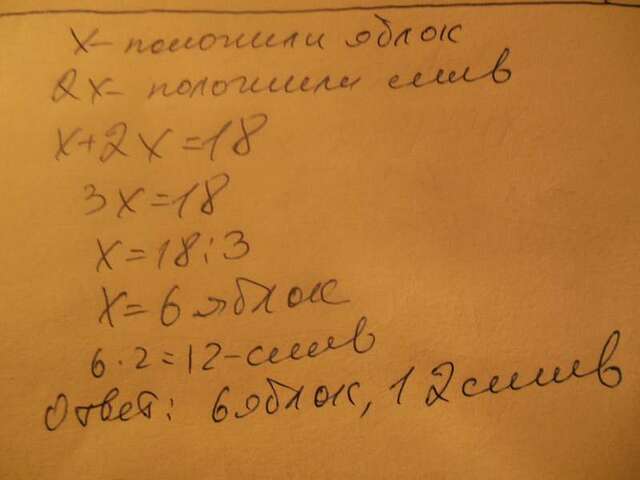 x - положили яблок
2x - положили слив
x+2x=18
3x=18
x=18:3
x=6 яблок
6·2=12-слив
Ответ: 6 яблок, 12 слив